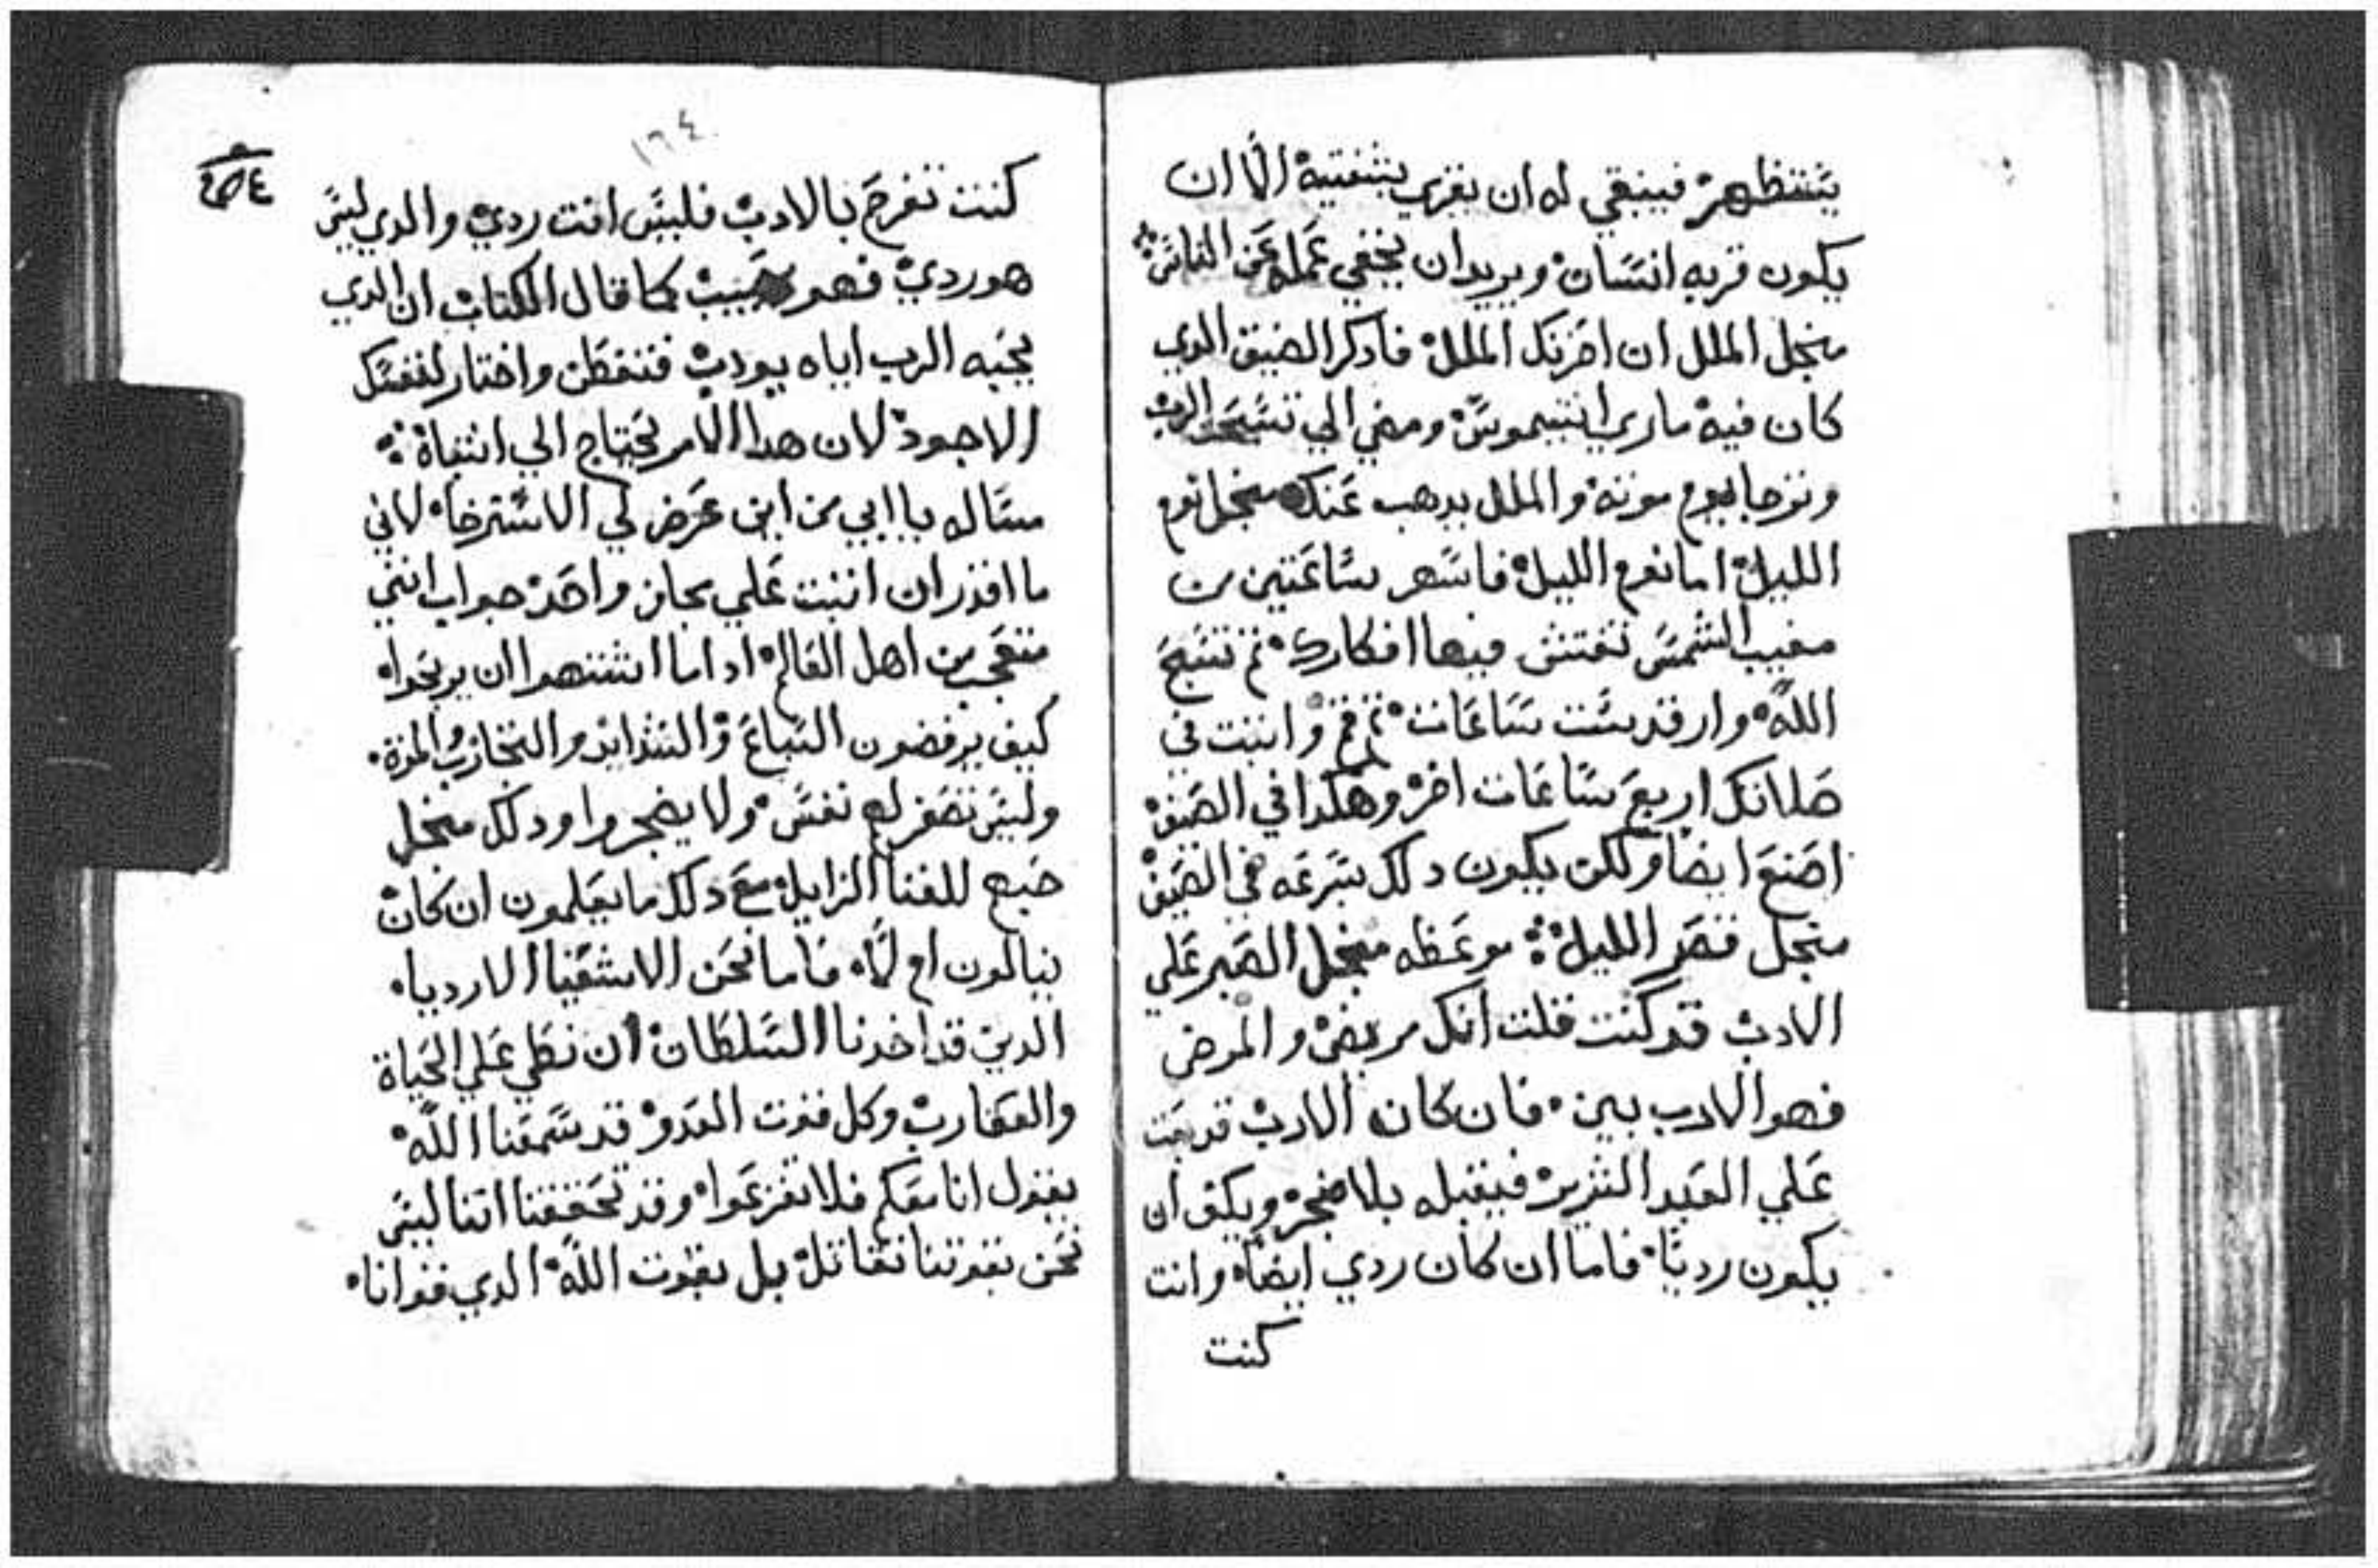 يستظهر فينبغي له ان يقري بشفتيه الا ان
يكون قربه انسان ويريد ان يخفي عمله عن الناس
منجل الملل ان احزنك الملل فادكر الضيق الدي
كان فيه ماري انتيموس ومضي الي تسبحت الرب
وتوجا بعرم موزنه والملل يدهب عنك منجل نوم
الليل اما نوم الليل فاسهر ساعتين من
مغيب الشمس تفتش فيها افكارك ثم تسبح
الله وارقد ست ساعات ثم قم واثبت في
صلاتك اربع ساعات اخر وهكدا في الصيف
اصنع ايضا ولكن يكون دلك بسرعه في الصيف
منجل قصر الليل موعظه منجل الصبر علي
الادب قد كنت قلت انك مريض والمرض
فهو الادب بين فان كان الادب قد بعت
علي العبد الشرير فيقبله بلا ضجر ويكفي ان
يكون رديا فاما ان كان ردي ايضا وانت
كنت
١٦٤
كنت تفرح بالادب فليس انت ردي والدي ليس
هو ردي فهو حبيب كما قال الكتاب ان الدي
يحبه الرب اياه يودب فتفطن واختار لنفسك
الاجود لان هدا الامر يحتاج الي انتباه
مساله يا ابي من اين عرض لي الاسترخا لاني
ما اقدر ان اثبت علي مجاز واحد جواب انني
متعجب من اهل العالم ادا ما اشتهوا ان يربحوا
كيف يرفضون السباع والشدايد والتجارب المره
وليس تصغر لهم نفس ولا يضجروا ودلك منجل
ضبع للفنا الزايل مع دلك ما يعلمون ان كان
ينالون ام لا فاما نحن الاشقيا الارديا
الدين قد اخدنا السلطان ان نطي علي الحياة
والعقارب وكل قوت العدو قد سمعنا الله
يقول انا معكم فلا تفزعوا وقد تحققنا اننا ليس
نحن بقوتنا نقاتل بل بقوت الله الدي قوانا